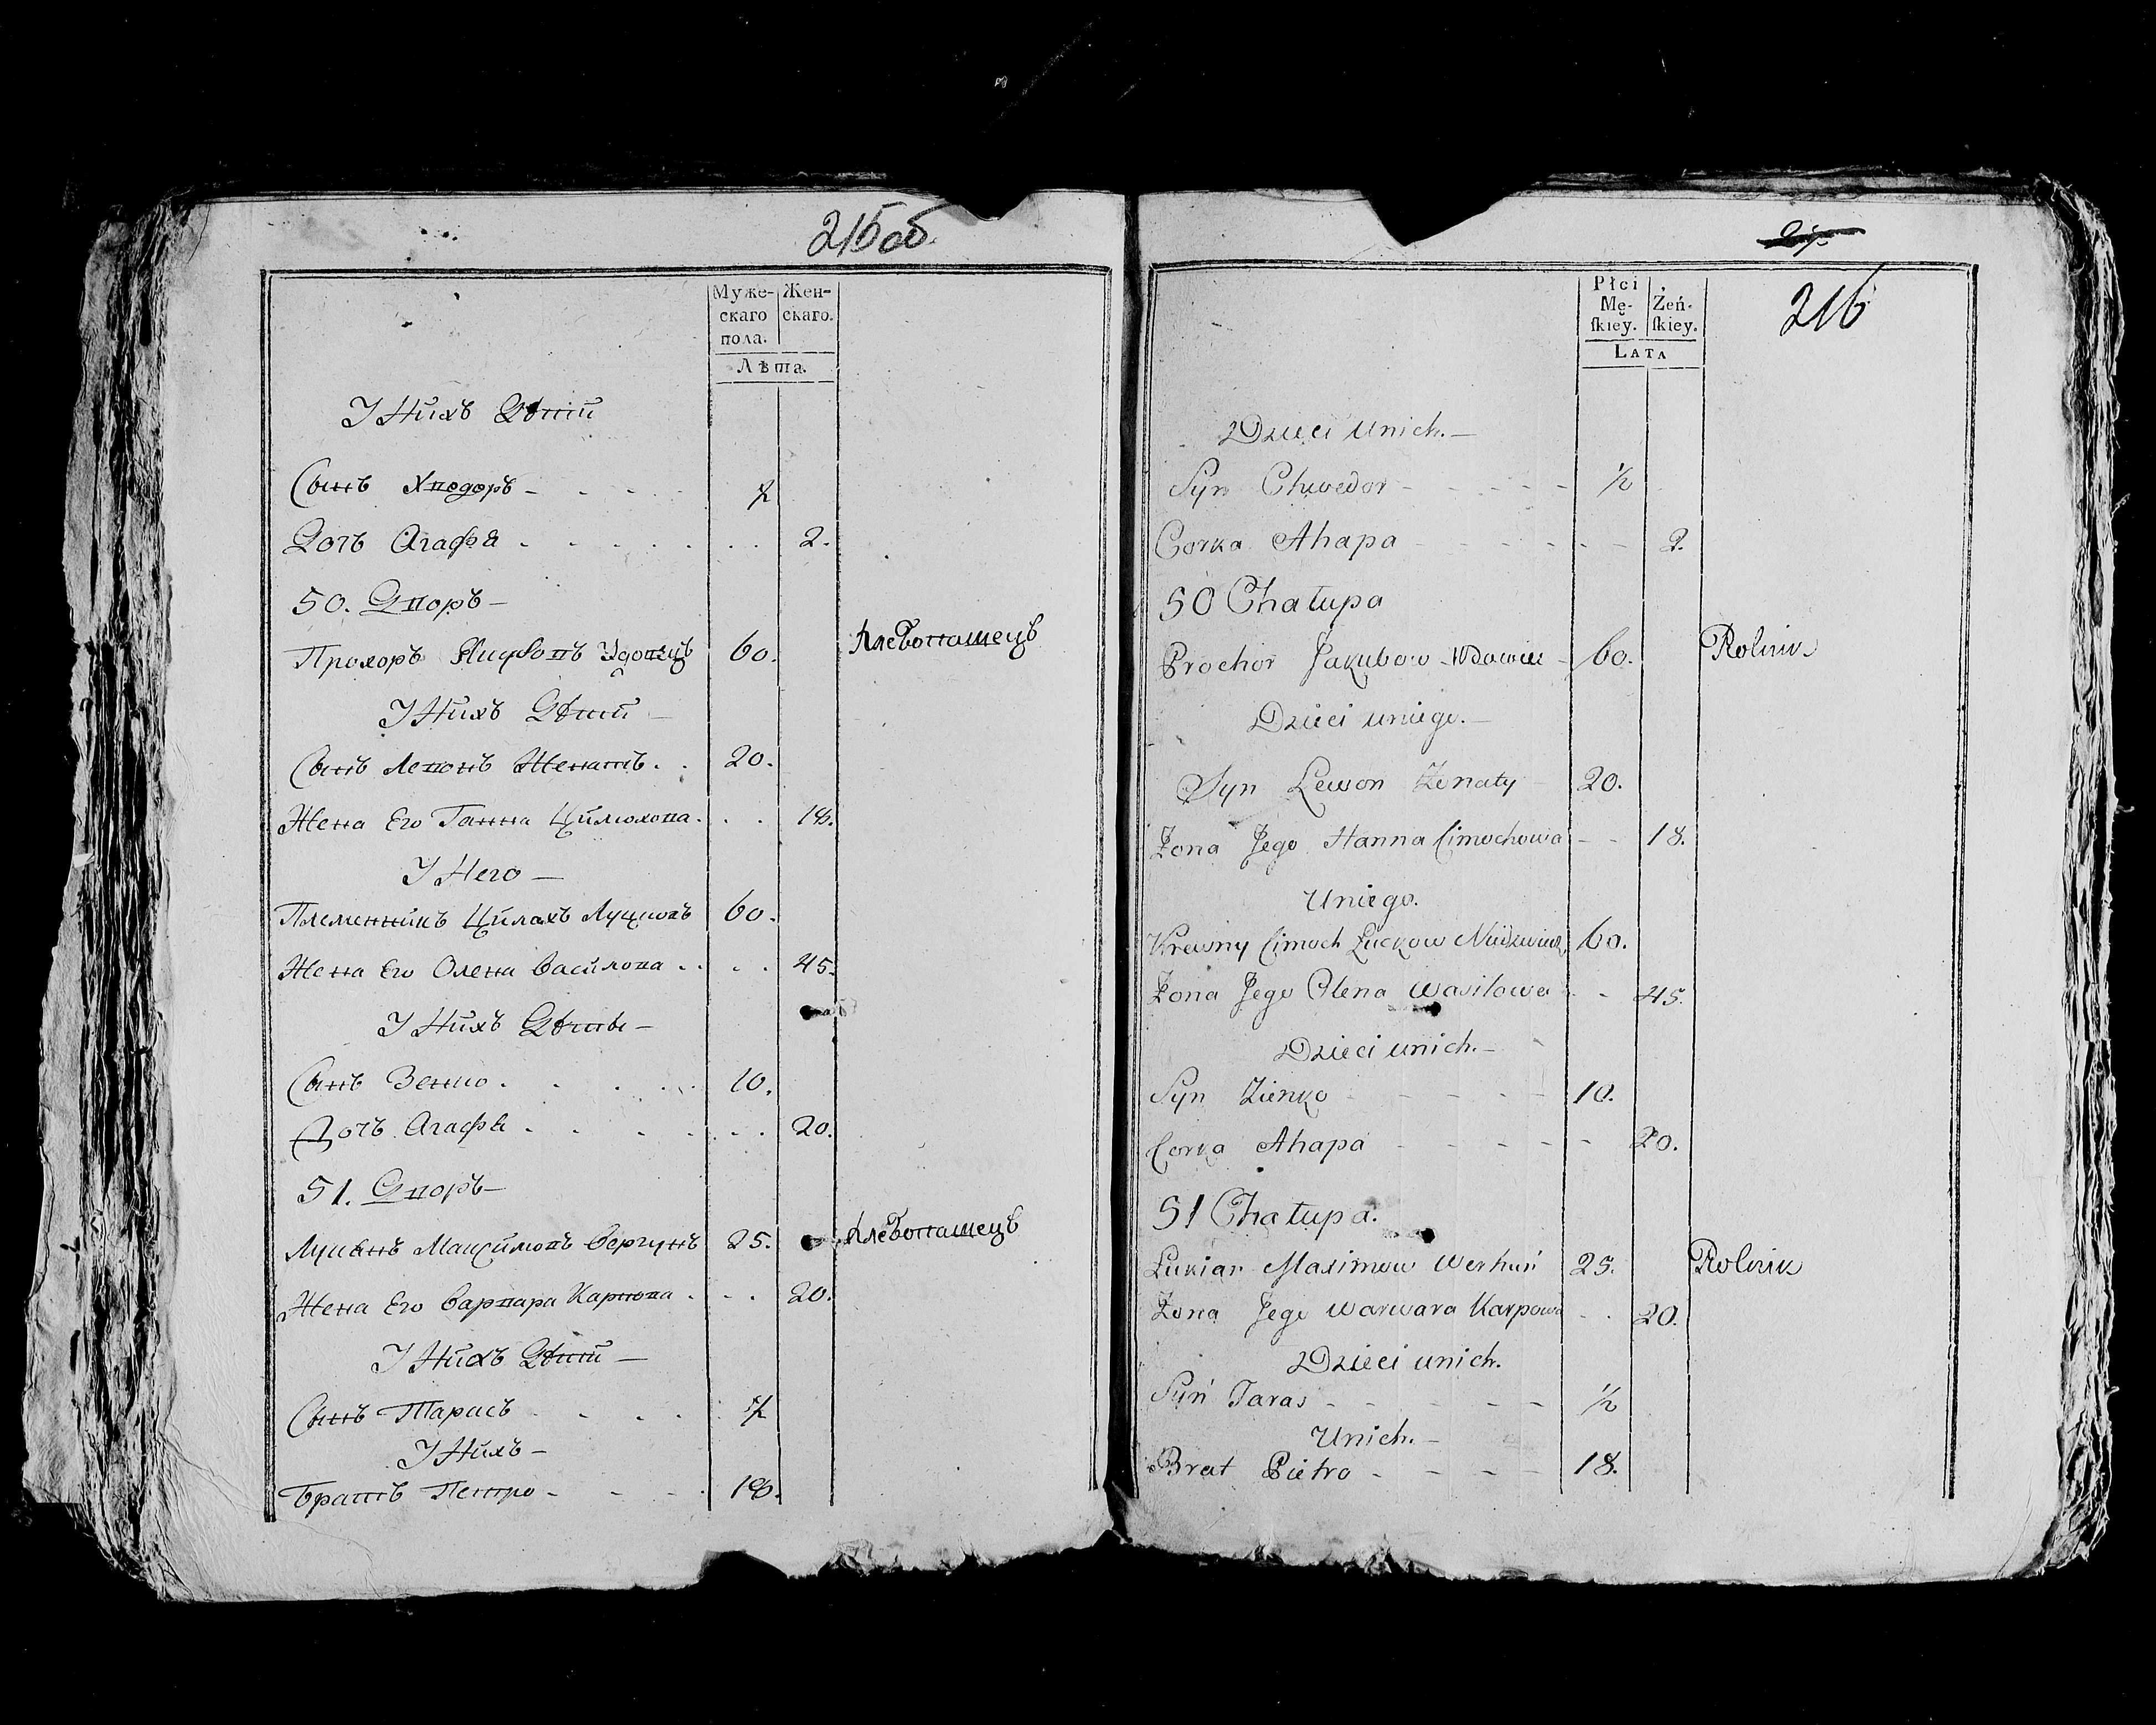 215об.
Муже-
скаго
пола.
Жен-
скаго.
Лѣта.
У Нихъ Дѣтй
Сынъ Хведоръ - ½
Доть Агафѣя 2.
50. Дворъ -
Прохоръ Удовецъ 60. Хлебопашецъ
У Нихъ Дѣтй
Сынъ Левонъ Женатъ. 20.
Жена Его Ганна Цимохова. 18.
У Него -
Племенникъ Цимахъ Луцковъ 60.
Жена Его Олена Василова 45.
У Нихъ Дѣти -
Сынъ Зенко 10.
Доть Агафѣя 20.
51. Дворъ -
Лукѣянъ Максимовъ Вергунъ 25. Хлебопашецъ
Жена Его Варвара Карпова 20.
У Нихъ Дѣтй -
Сынъ Тарасъ ½
У Нихъ -
Братъ Петро - 18.
216
Płci
Mę-
ſkiey.
Żeń-
ſkiey.
Lata
Dzieci unich. -
Syn Chwedor - ½
Corka Ahapa - 2.
50 Chałupa
Prochor Jakubow Wdowiec - 60. Rolnik
Dzieci uniego. -
Syn Lewon Żonaty - 20.
Żona Jego Hanna Cimochowa - 18.
Uniego.
Krewny Cimoch Łuckow 60.
Żona Jego Olena Wasilowa - 45.
Dzieci unich. -
Syn Zienko - 10.
Corka Ahapa - 20.
51 Chałupa.
Łukian Maximow Werhuń 25. Rolnik
Żona Jego Warwara Karpowa 20.
Dzieci unich.
Syn Taras - ½
Unich. -
Brat Pietro - 18.